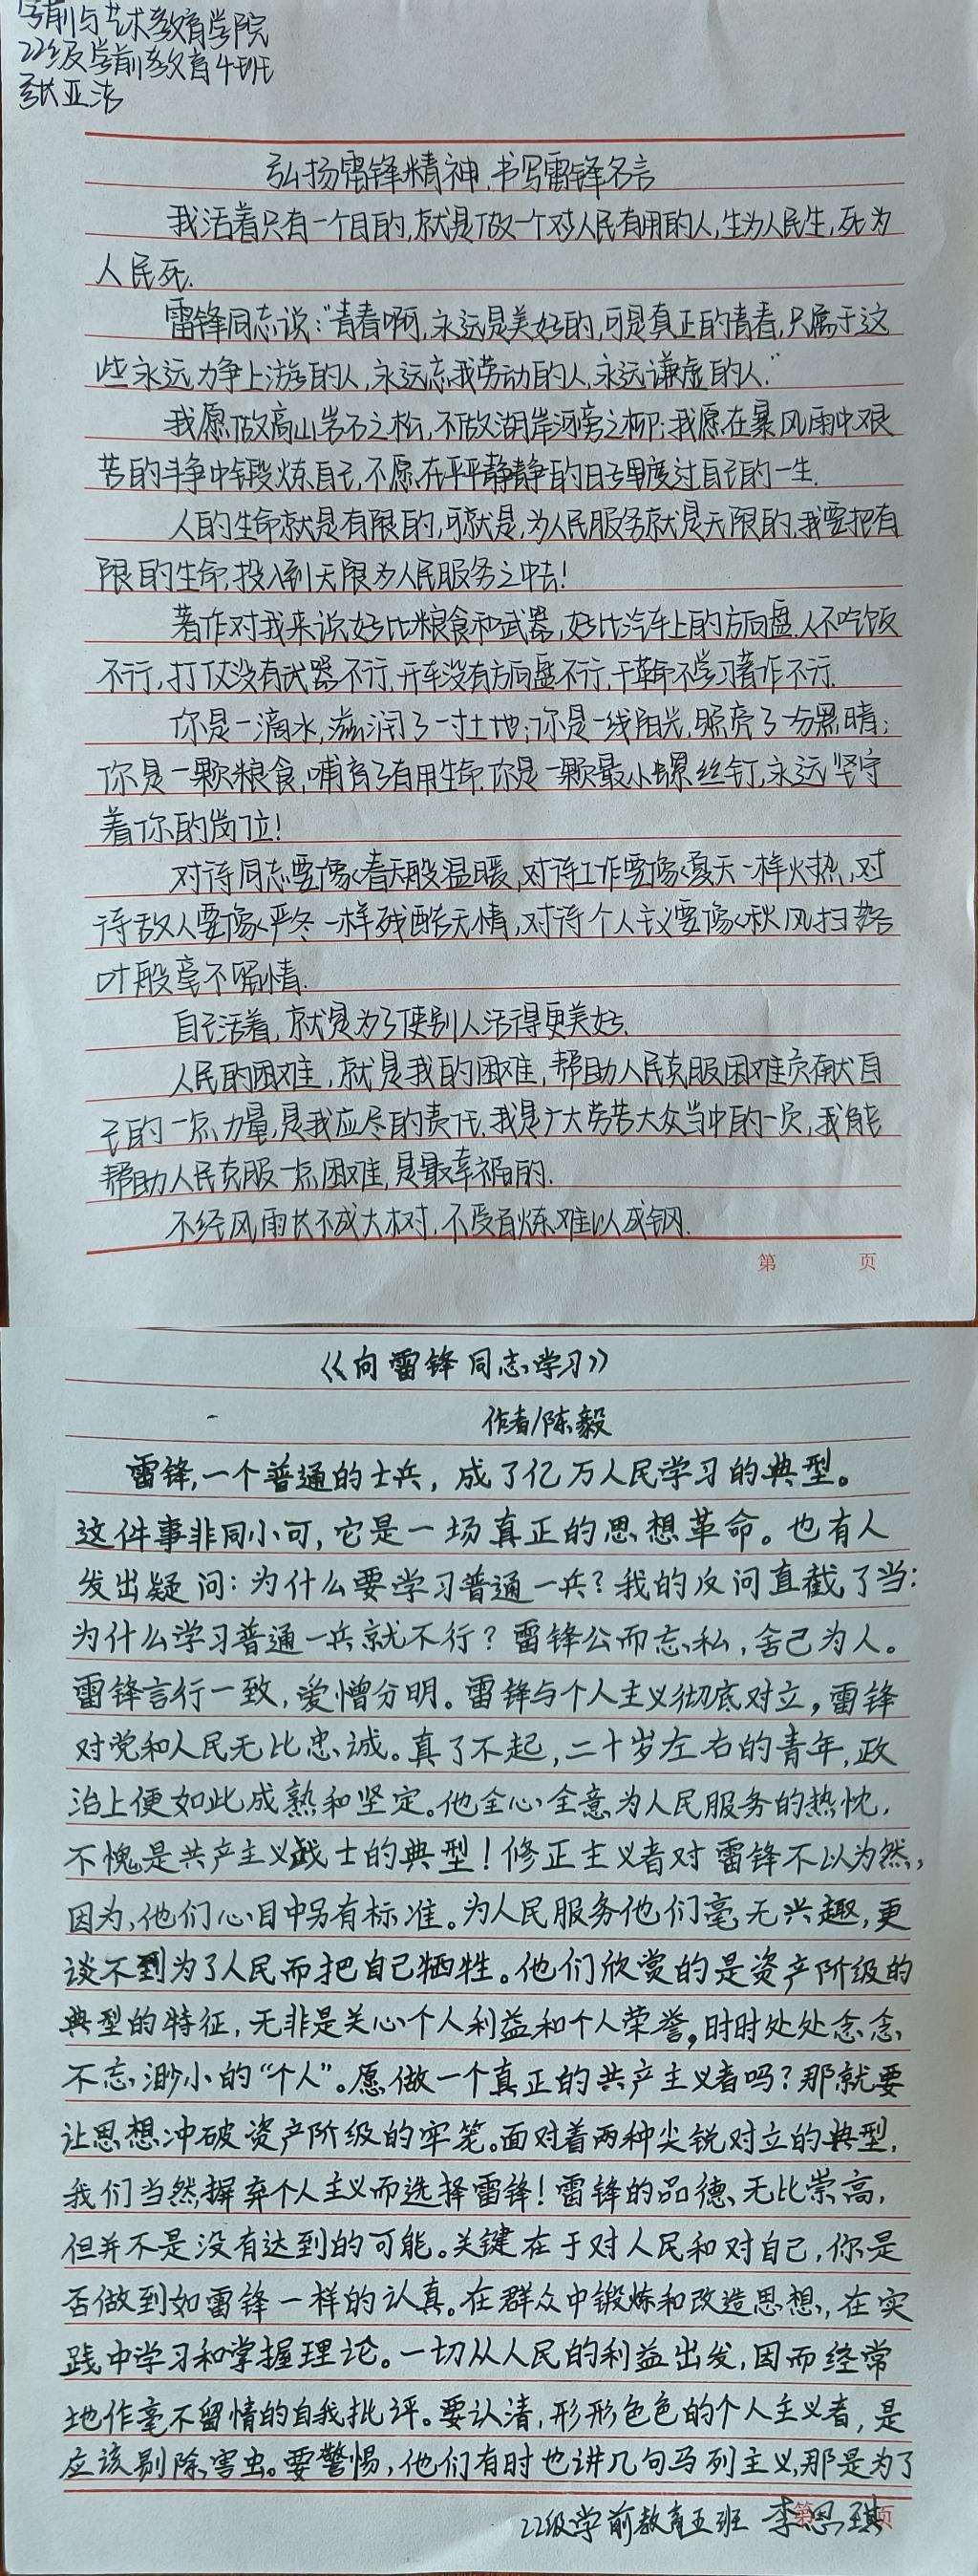 学前与艺术教育学院
22级学前教育4班
张亚洁
弘扬雷锋精神.书写雷锋名言
我活着只有一个目的,就是做一个对人民有用的人,生为人民生,死为
人民死.
雷锋同志说:“青春啊,永远是美好的,可是真正的青春,只属于这
些永远力争上游的人,永远忘我劳动的人,永远谦虚的人.”
我愿做高山岩石之松,不做湖岸河旁之柳;我愿在暴风雨中艰
苦的斗争中锻炼自己,不愿在平平静静的日子里度过自己的一生.
人的生命就是有限的,可就是,为人民服务就是无限的,我要把有
限的生命,投入到无限为人民服务之中去!
著作对我来说好比粮食和武器,好比汽车上的方向盘.人不吃饭
不行,打仗没有武器不行,开车没有方向盘不行,干革命不学习著作不行.
你是一滴水,滋润了一寸土地;你是一线阳光,照亮了一分黑暗;
你是一颗粮食,哺育了有用生命.你是一颗最小螺丝钉,永远坚守
着你的岗位!
对待同志要像春天般温暖,对待工作要像夏天一样火热,对
待敌人要像严冬一样残酷无情,对待个人主义要像秋风扫落
叶般毫不留情.
自己活着,就是为了使别人活得更美好.
人民的困难,就是我的困难,帮助人民克服困难贡献自
己的一点力量,是我应尽的责任.我是广大劳苦大众当中的一员,我能
帮助人民克服一点困难,是最幸福的.
不经风雨长不成大树,不受百炼难以成钢.
第 页
《向雷锋同志学习》
作者/陈毅
雷锋,一个普通的士兵,成了亿万人民学习的典型。
这件事非同小可,它是一场真正的思想革命。也有人
发出疑问:为什么要学习普通一兵?我的反问直截了当:
为什么学习普通一兵就不行?雷锋公而忘私,舍己为人。
雷锋言行一致,爱憎分明。雷锋与个人主义彻底对立,雷锋
对党和人民无比忠诚。真了不起,二十岁左右的青年,政
治上便如此成熟和坚定。他全心全意为人民服务的热忱,
不愧是共产主义战士的典型!修正主义者对雷锋不以为然,
因为,他们心目中另有标准。为人民服务他们毫无兴趣,更
谈不到为了人民而把自己牺牲。他们欣赏的是资产阶级的
典型的特征,无非是关心个人利益和个人荣誉,时时处处念念
不忘渺小的“个人”。愿做一个真正的共产主义者吗?那就要
让思想冲破资产阶级的牢笼。面对着两种尖锐对立的典型,
我们当然摒弃个人主义而选择雷锋!雷锋的品德、无比崇高,
但并不是没有达到的可能。关键在于对人民和对自己,你是
否做到如雷锋一样的认真。在群众中锻炼和改造思想,在实
践中学习和掌握理论。一切从人民的利益出发,因而经常
地作毫不留情的自我批评。要认清,形形色色的个人主义者,是
应该剔除害虫。要警惕,他们有时也讲几句马列主义,那是为了
22级学前教育五班 李思琪
第 页